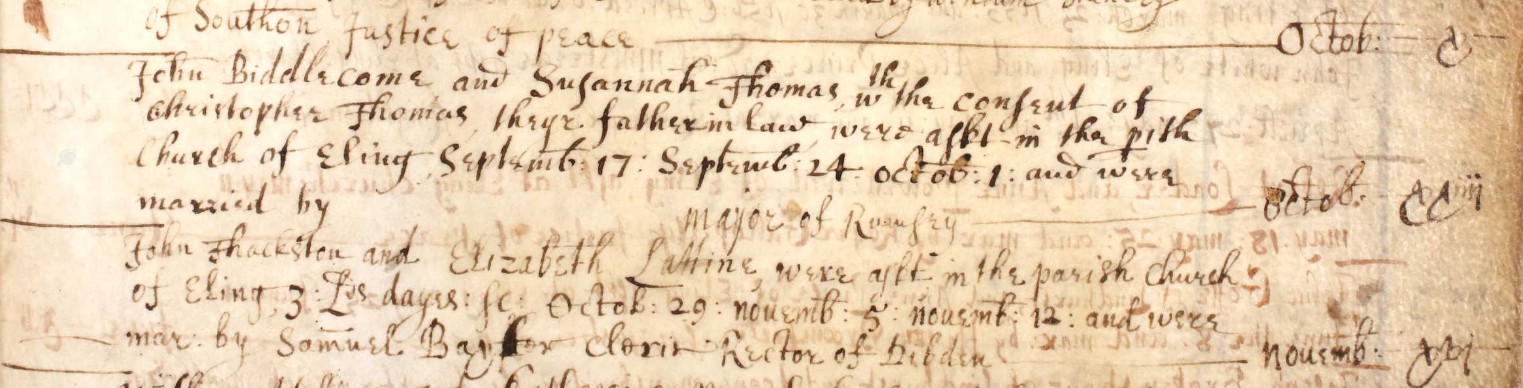 of Southon Justice of peace Octob: x
John Biddlecome and Susannah Thomas, wth the consent of
Christopher Thomas, theyr father in law, were askt in the pish
Church of Eling, Septemb: 17: Septemb: 24 Octob: 1: and were
married by major of Rumsey Octob: xxiii
John Thackston and Elizabeth Lattine, were askt in the parish Church
of Eling, 3: Lds dayes: sc: Octob: 29: novemb: 5: novemb: 12: and were
mar: by Samuel Clerir Rector of Dibden novemb: xvi